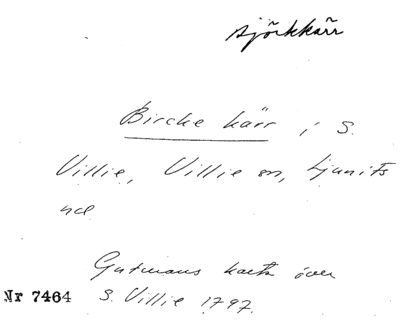 Björkkärr
Bircke kärr i S.
Villie, Villie sn, Ljunits
hd
Gutmans karta över
Nr 7464 S. Villie 1797.